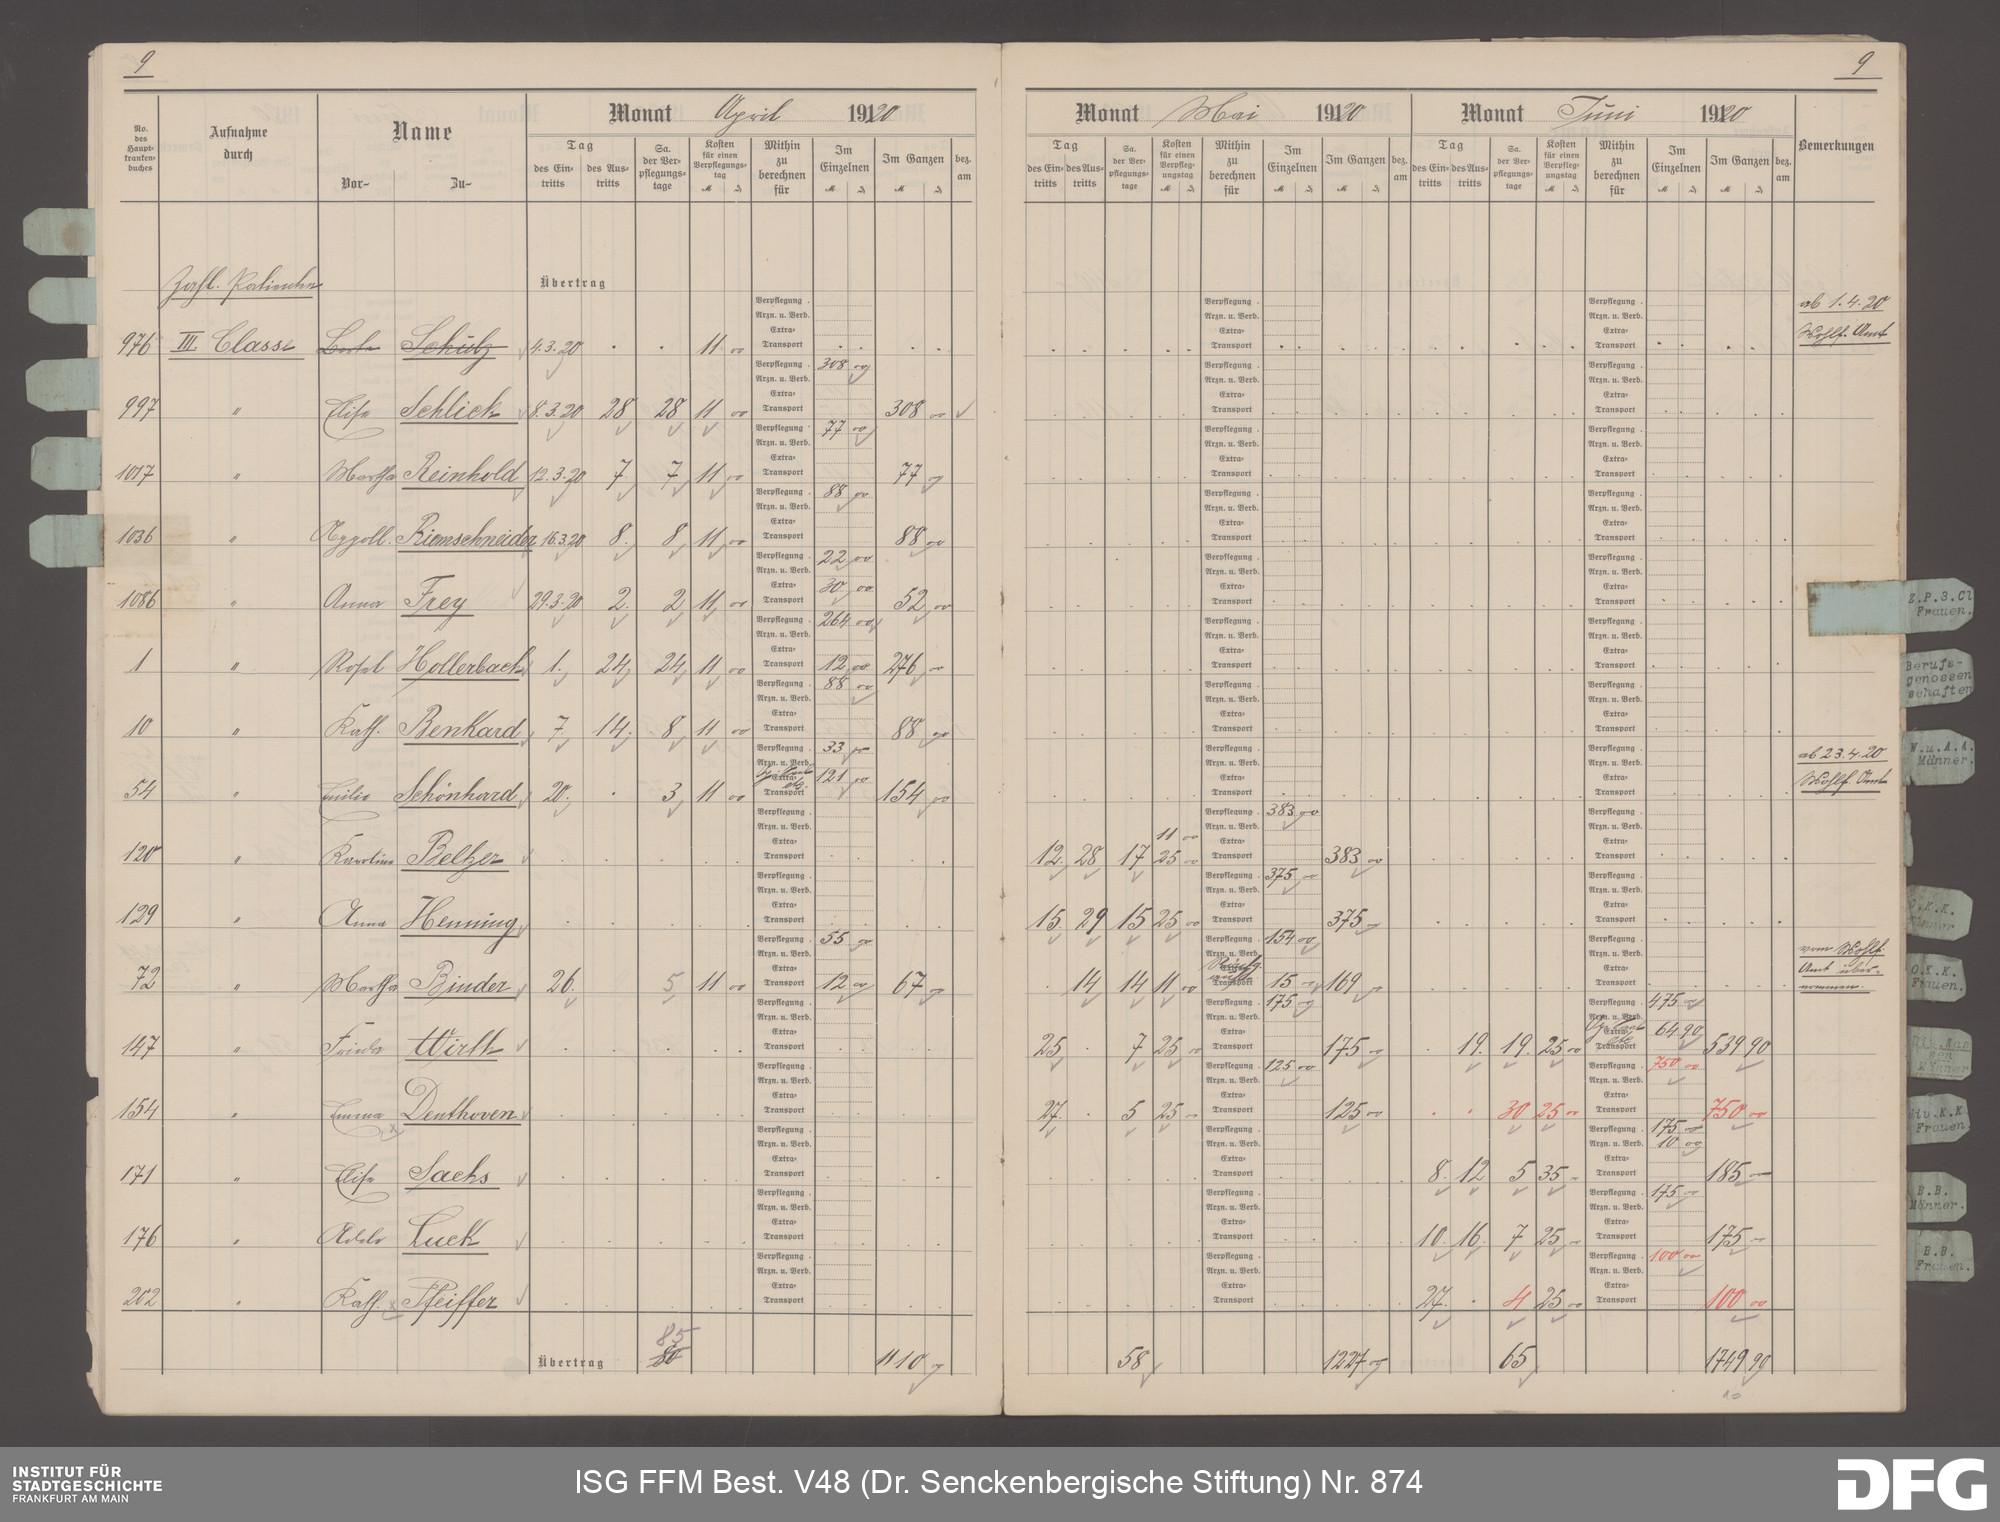 9
9
No. des Haupt-krankenbuches
Aufnahme durch
Name
Vor-
Zu-
Monat April 1920
Tag
des Eintritts
des Austritts
Sa. der Verpflegungstage
Kosten für einen Verpflegungstag
Mithin zu berechnen für
Im Einzelnen
Im Ganzen
bez. am
Monat Mai 1920
Tag
des Eintritts
des Austritts
Sa. der Verpflegungstage
Kosten für einen Verpflegungstag
Mithin zu berechnen für
Im Einzelnen
Im Ganzen
bez. am
Monat Juni 1920
Tag
des Eintritts
des Austritts
Sa. der Verpflegungstage
Kosten für einen Verpflegungstag
Mithin zu berechnen für
Im Einzelnen
Im Ganzen
bez. am
Bemerkungen
Übertrag
Verpflegung
Arzn. u. Verb.
Extra-
Transport
976 III. Classe Schütz 4.3.20 11 00 ab 1.4.20 Wohlf. Amt
997 " Elise Schlick 8.3.20 28 28 11 00 308 00 308 00
1017 " Martha Reinhold 12.3.20 7 7 11 00 77 00 77 00
1036 " Riemschneider 16.3.20 8. 8 11 00 88 00 88 00
1086 " Anna Frey 29.3.20 2. 2 11 00 22 00 30 00 52 00
1 " Rosel Hollerbach 1. 24 24 11 00 264 00 12 00 276 00
10 " Kath. Benkard 7 14. 8 11 00 88 00 88 00
54 " Emilie Schönhard 20. 3 11 00 33 00 121 00 154 00 ab 23.4.20 Wohlf. Amt
120 " Karoline Belzer 12. 28 17 11 00 25 00 383 00 383 00
129 " Anna Henning 15. 29 15 25 00 375 00 375 00
72 " Martha Binder 26. 5 11 00 55 00 12 00 67 00 14 14 11 00 154 00 15 00 169 vom Wohlf. Amt übernommen.
147 " Frieda Wirth 25 7 25 00 175 00 175 00 19. 19. 25 00 475 00 64 90 539 90
154 " Emma Denthoven 27. 5 25 125 00 125 00 30 25 00 750 00 750 00
171 " Elise Sachs 8. 12 5 35 175 00 10 00 185
176 " Adele Luck 10. 16. 7 25 175 175
202 " Kath. Pfeiffer 27. 4 25 00 100 00 100 00
Übertrag 85 1110 58 1227 00 65 1749 90
Z.P.3.Cl Frauen.
Berufs-genossenschaften
W.u.A.A. Männer.
O.K.K. Männer
O.K.K. Frauen.
Div.K.K. Frauen.
B.B. Männer.
B.B. Frauen.
INSTITUT FÜR
STADTGESCHICHTE
FRANKFURT AM MAIN
ISG FFM Best. V48 (Dr. Senckenbergische Stiftung) Nr. 874
DFG